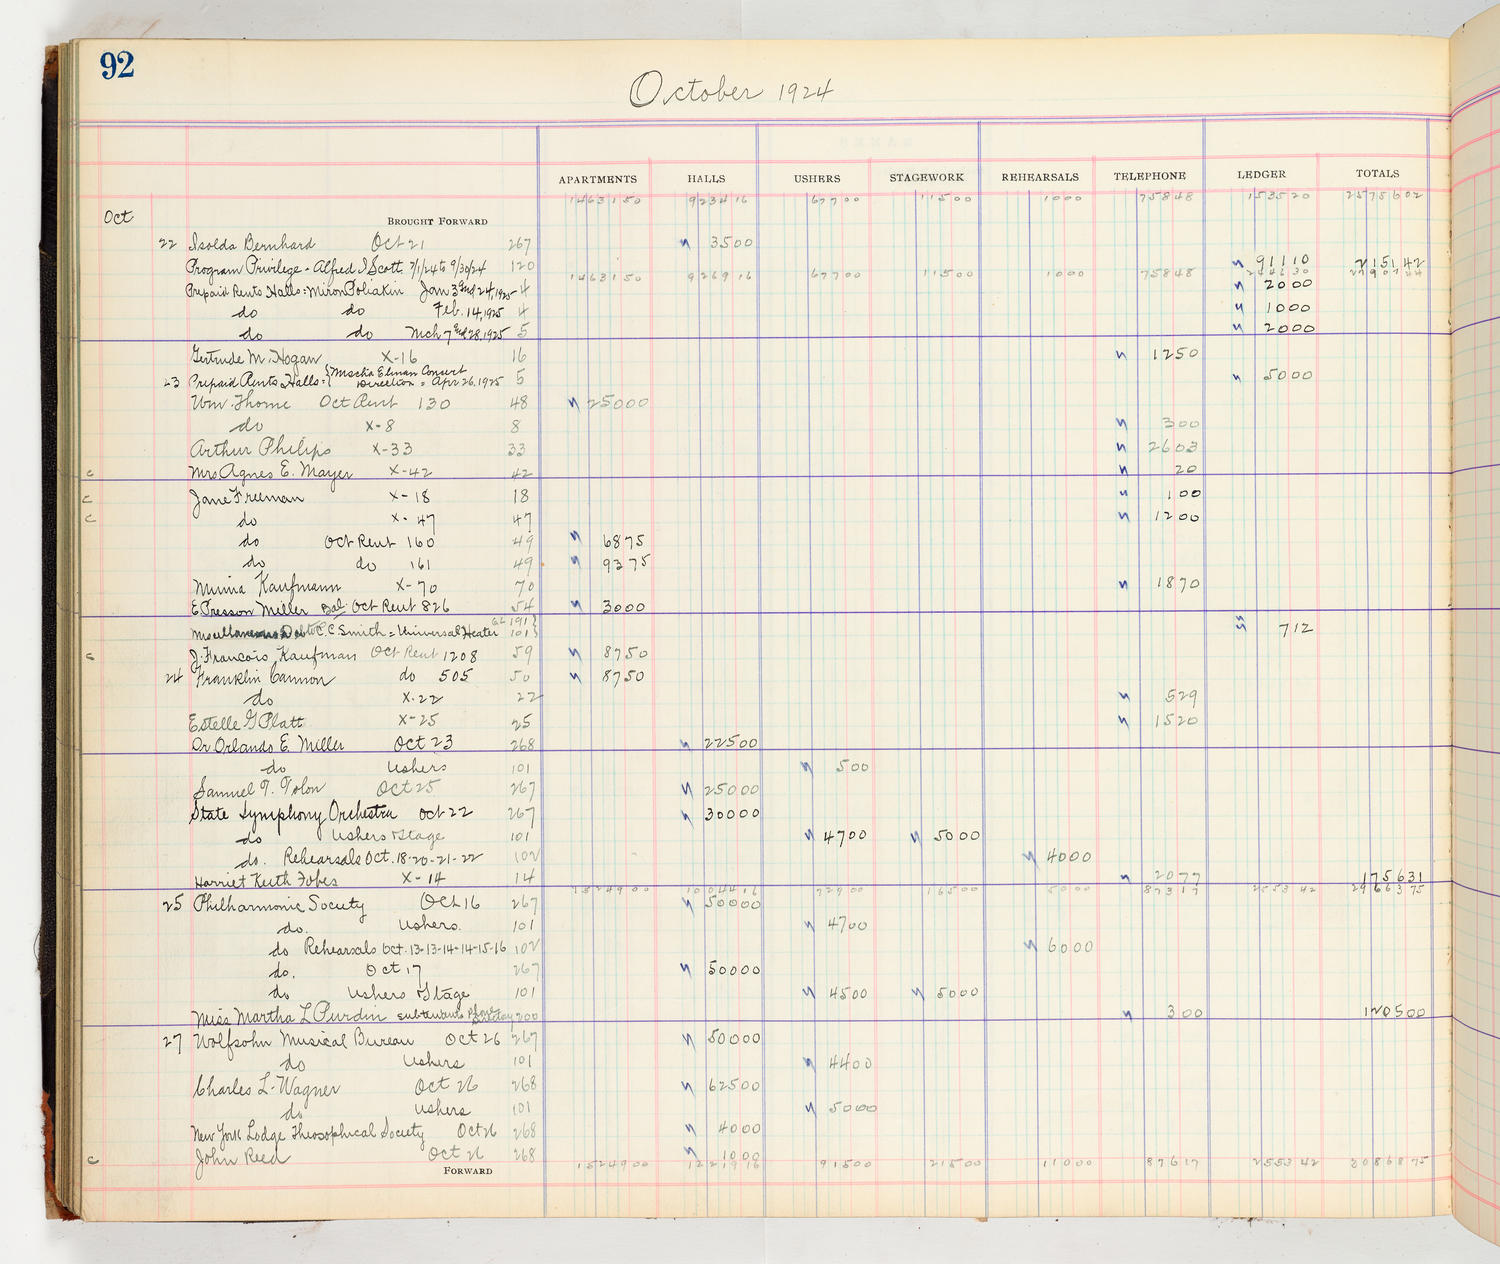 92
October 1924
APARTMENTS HALLS USHERS STAGEWORK REHEARSALS TELEPHONE LEDGER TOTALS
Oct BROUGHT FORWARD 14631 50 9234 16 677 00 115 00 10 00 758 48 1535 20 2575602
22 Isolda Bernhard Oct 21 267 35 00
Program Privilege - Alfred I Scott 7/1/24 to 9/30/24 120 911 10 2151 42
14631 50 9269 16 677 00 115 00 10 00 758 48 2446 30
Prepaid Rents Halls: Miron Poliakin Jan 3rd 24, 1925 4 20 00
do do Feb. 14, 1925 4 10 00
do do Mch 7 28, 1925 5 20 00
Gertrude M. Hogan X-16 16 12 50
23 Prepaid Rents Halls: { Mischa Elman Concert Direction = Apr 26, 1925 5 50 00
Wm. Thome Oct Rent 130 48 250 00
do X-8 8 3 00
Arthur Philips X-33 33 26 03
c Mrs Agnes E. Mayer X-42 42 20
c Jane Freeman X-18 18 1 00
c do X-47 47 12 00
do Oct Rent 160 49 68 75
do do 161 49 93 75
Minna Kaufmann X-70 70 18 70
E Presson Miller Bal Oct Rent 826 54 30 00
Miscellaneous Debts C.C. Smith = Universal Heater GL 191 101 } 7 12
c J. Francois Kaufman Oct Rent 1208 59 87 50
24 Franklin Cannon do 505 50 87 50
do X-22 22 5 29
Estelle G Platt X-25 25 15 20
Dr Orlando E. Miller Oct 23 268 225 00
do Ushers 101 5 00
Samuel T. Tolon Oct 25 267 250 00
State Symphony Orchestra Oct 22 267 300 00
do Ushers & Stage 101 47 00 50 00
do. Rehearsals Oct. 18-20-21-22 102 40 00
Harriet Keith Fobes X-14 14 20 77 1756 31
15249 00 10044 16 729 00 165 00 50 00 873 17 2553 42 29663 75
25 Philharmonic Society Oct 16 267 500 00
do. Ushers. 101 47 00
do Rehearsals Oct. 13-13-14-14-15-16 102 60 00
do. Oct 17 267 500 00
do Ushers & Stage 101 45 00 50 00
Miss Martha L Purdin Subtenants Phone 200 3 00 1205 00
27 Wolfsohn Musical Bureau Oct 26 267 500 00
do Ushers 101 44 00
Charles L. Wagner Oct 26 268 625 00
do Ushers 101 50 00
New York Lodge Theosophical Society Oct 26 268 40 00
c John Reed Oct 26 268 10 00
FORWARD 15249 00 12219 16 915 00 215 00 110 00 876 17 2553 42 30868 75